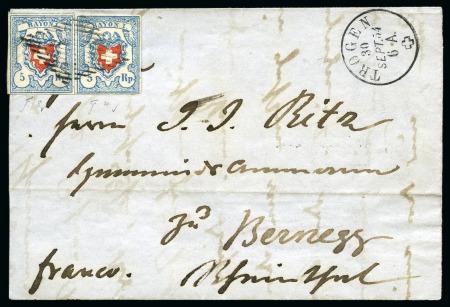 RAYON I. RAYON I.
5 Rp. 5 Rp.
TROGEN
30
SEPT. 54
6 A.
Herrn J. J. Ritz
zu Bernegg
franco. Rheinthal